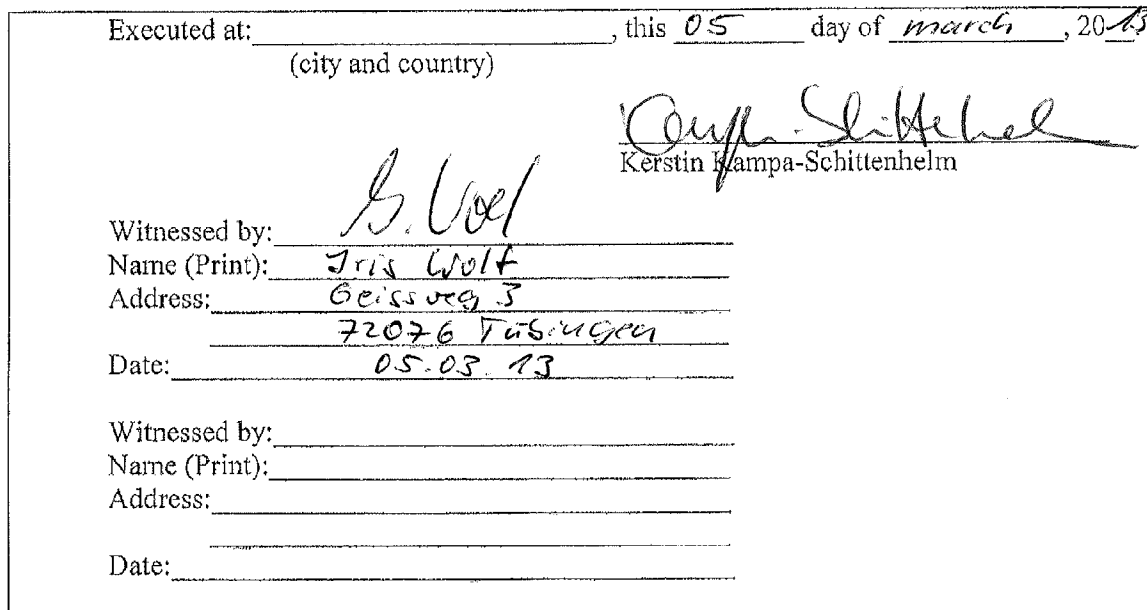 Executed at: , this 05 day of march, 2013
(city and country)
Kampa-Schittenhelm
Kerstin Kampa-Schittenhelm
Witnessed by:
Name (Print): Iris Wolf
Address: Geissweg 3
72076 Tübingen
Date: 05.03.13
Witnessed by:
Name (Print):
Address:
Date: